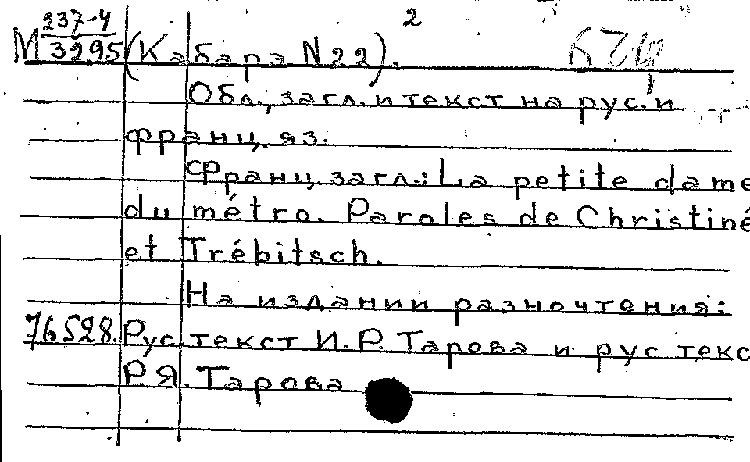 2
М 237-4
3295 (Кабара N 22).
Обл., загл. и текст на рус. и
франц. яз.
Франц. загл.: La petite dame
du métro. Paroles de Christiné
et Trébitsch.
На издании разночтения:
76528. Рус. текст И. Р. Тарова и рус текс
Р Я. Тарова